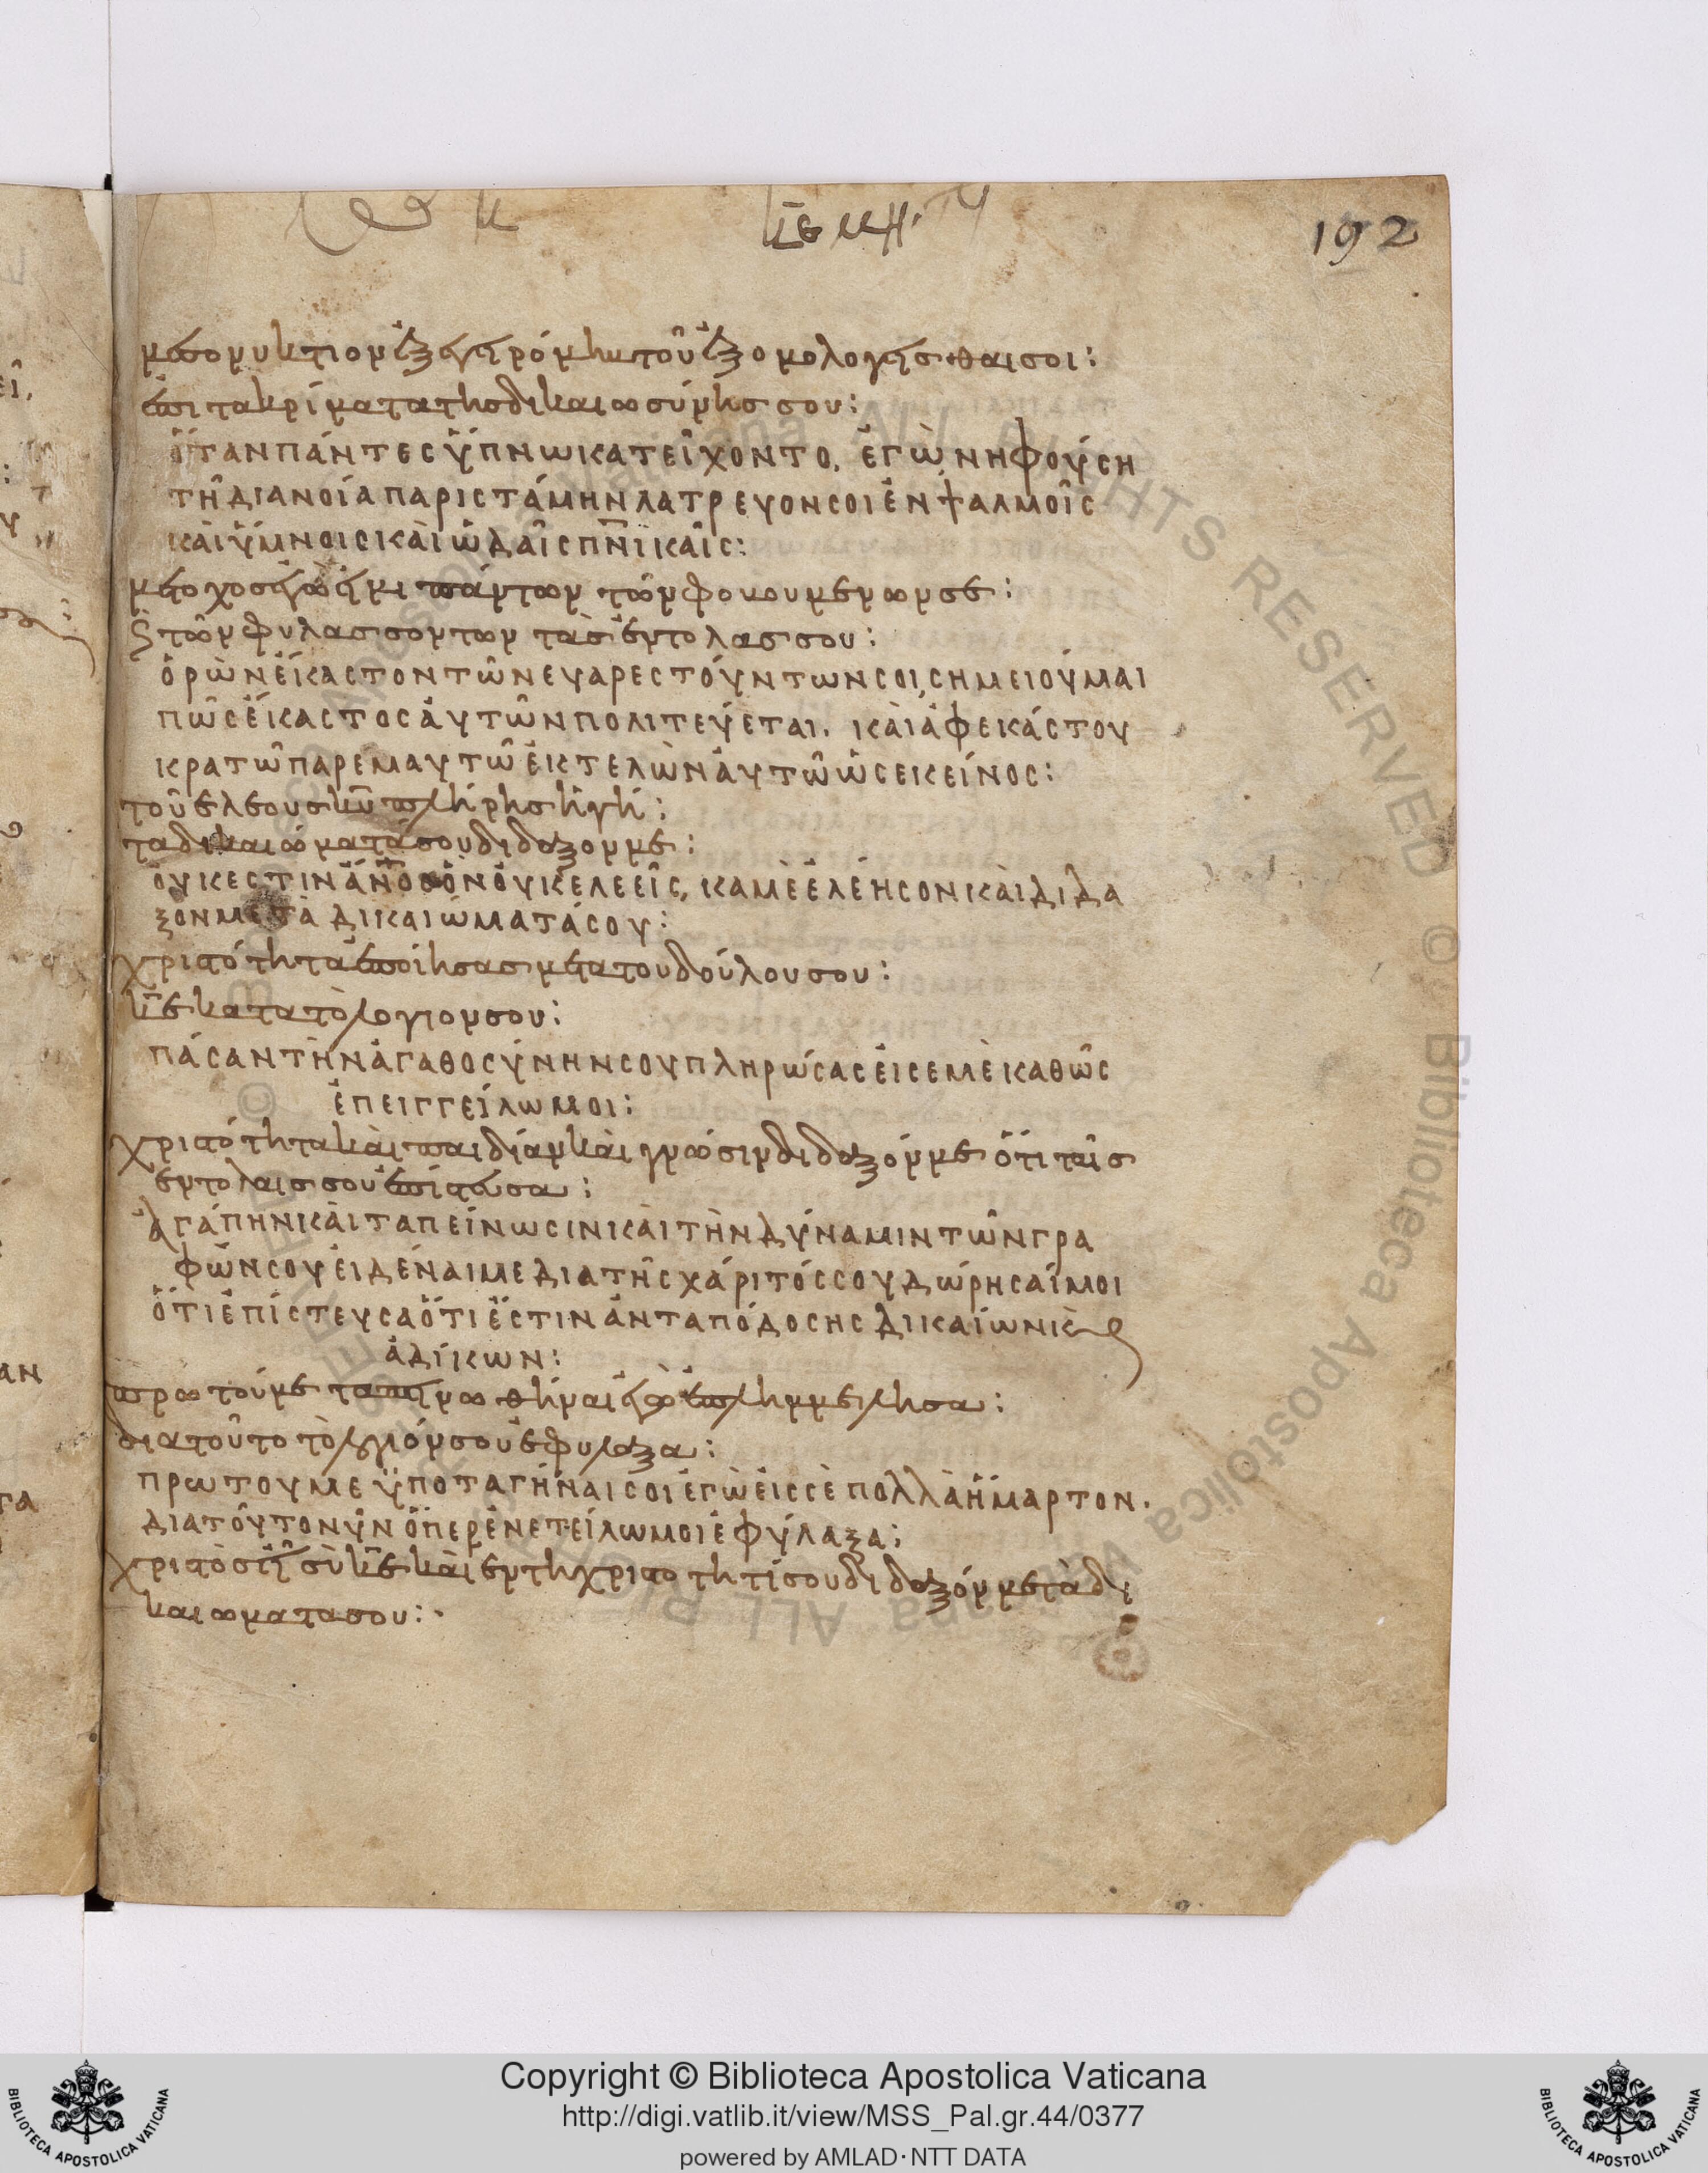 192
μεσονυκτιον ἐξεγειρόμην τοῦ ἐξομολογεῖσθαι σοι:
ἐπι τα κρίματα της δικαιωσύνης σου:
ὅταν πάντες ὕπνω κατεῖχοντο, ἐγὼ νηφούση
τῆ διανοία παριστάμην λατρευον σοι ἐν ψαλμοῖς
καὶ ὕμνοις καὶ ὠδαῖς πνϊκαῖς:
μετοχος ἐγὼ εἰμι πάντων τῶν φοβουμενων σε:
ϛ τῶν φυλασσοντων τὰς ἐντολας σου:
ὁρὼν ἕκαστον τῶν ευαρεστούντων σοι, σημειούμαι
πῶς ἕκαστος ἀυτῶν πολιτεύεται. καὶ ἀφ εκάστου
κρατῶ παρ εμαυτῶ ἐκτελὼν ἀυτῶ ὡς εκείνος:
τοῦ ελεους κε πλήρης ἡ γή:
τα δικαιωματά σου διδαξον με:
ὀυκ εστιν ἀνος ὃν ὀυκ ελεεῖς, καμὲ ἐλέησον κὰι διδα
ξον με τὰ δικαιώματά σου:
χριστότητα ἐποίησας μετα του δούλου σου:
κε κατα τὸ λογιον σου:
πάσαν τὴν ἀγαθοσύνην σου πληρώσας ἐις εμὲ καθῶς
ἐπειγγείλω μοι:
χριστότητα κὰι παιδίαν κὰι γνώσιν διδαξόν με ὅτι ταῖς
εντολαις σου ἐπίστευσα:
ἀγάπην κὰι ταπείνωσιν κὰι τὴν δύναμιν τῶν γρα
φών σου ἐιδέναι με δια τῆς χάριτός σου δώρησαί μοι
ὅτι ἐπίστευσα ὅτι ἔστιν ἀνταπόδοσης δικαίων κὲ
ἀδίκων:
πρω τού με ταπεινωθήναι ἐγὼ ἐπλημμελησα:
δια τοῦτο τὸ λογιόν σου ἐφυλαξα:
πρω του με ὑποταγήναι σοι ἐγὼ ἐις σὲ πολλὰ ἥμαρτον.
δια τοῦτο νῦν ὅπερ ἐνετείλω μοι ἐφύλαξα:
χριστὸς εἶ σὺ κε κὰι εν τη χριστοτητί σου διδαξόν με τὰ δι
καιωματα σου:
Copyright © Biblioteca Apostolica Vaticana
http://digi.vatlib.it/view/MSS_Pal.gr.44/0377
powered by AMLAD·NTT DATA